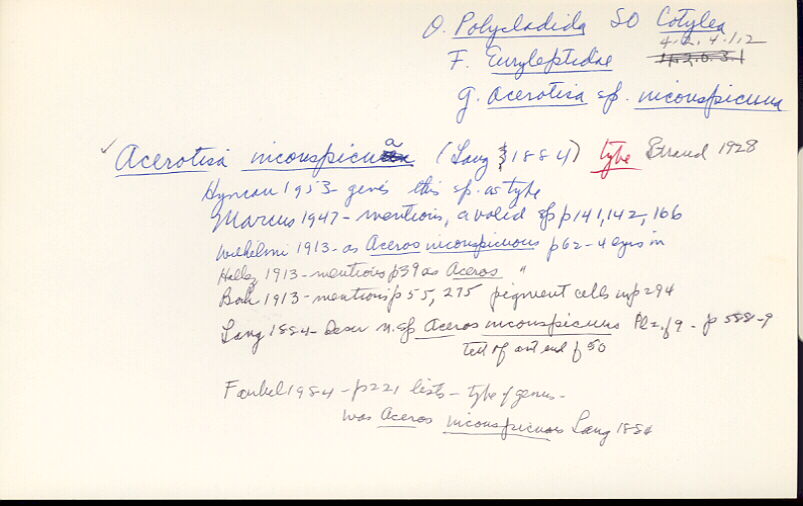 O. Polycladida SO Cotylea
4.2.4.1.2
F. Euryleptidae 4.2.6.3.1
g. Acerotisa sp. inconspicuus
✓ Acerotisa inconspicua (Lang 1884) type Strand 1928
Hyman 1953 - gives this sp. as type
Marcus 1947 - mentions, a valid sp p 141, 142, 166
Wilhelmi 1913 - as Aceros inconspicuous p 62 - 4 eyes in
Hallez 1913 - mentions p 39 as Aceros "
Bock 1913 - mentions p 55, 275 pigment cells in p 294
Lang 1884 - Descr n. sp Aceros inconspicuus Pl 2, f 9 - p 588-9
of ant end f 50
Faubel 1984 - p 221 lists - type of genus -
was Aceros inconspicuus Lang 1884